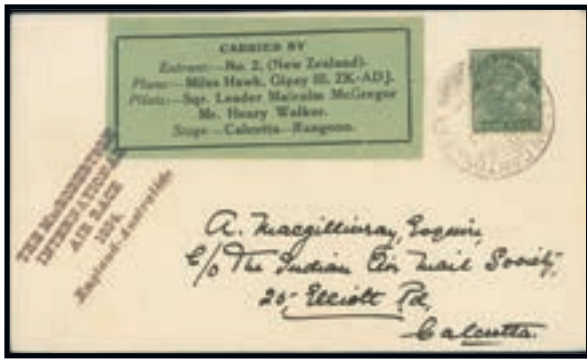 CARRIED BY
Entrant:—No. 2, (New Zealand).
Plane:—Miles Hawk, Gipsy III, ZK-ADJ.
Pilots:—Sqr. Leader Malcolm McGregor
Mr. Henry Walker.
Stage:—Calcutta-Rangoon.
THE MacROBERTSON
INTERNATIONAL
AIR RACE
1934.
England-Australia
A. Macgillivray, Esquire,
C/o The Indian Air Mail Society,
25, Elliott Rd,
Calcutta.